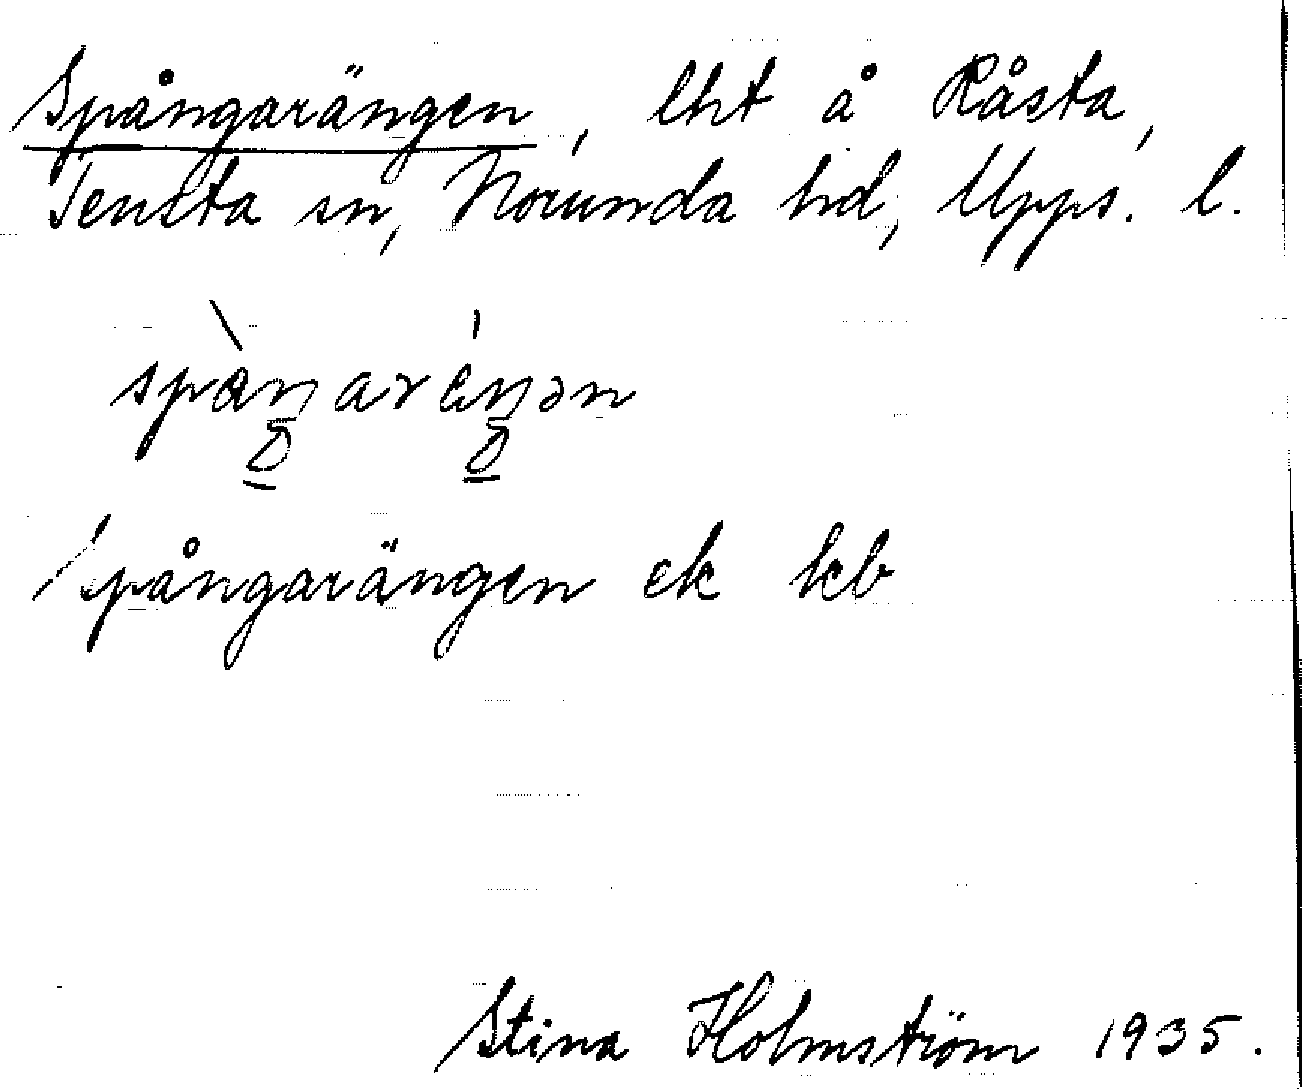 Spångarängen, lht å Råsta,
Tensta sn, Norunda hd, Upps. l.
Spångarängen ek kb
Stina Holmström 1935.